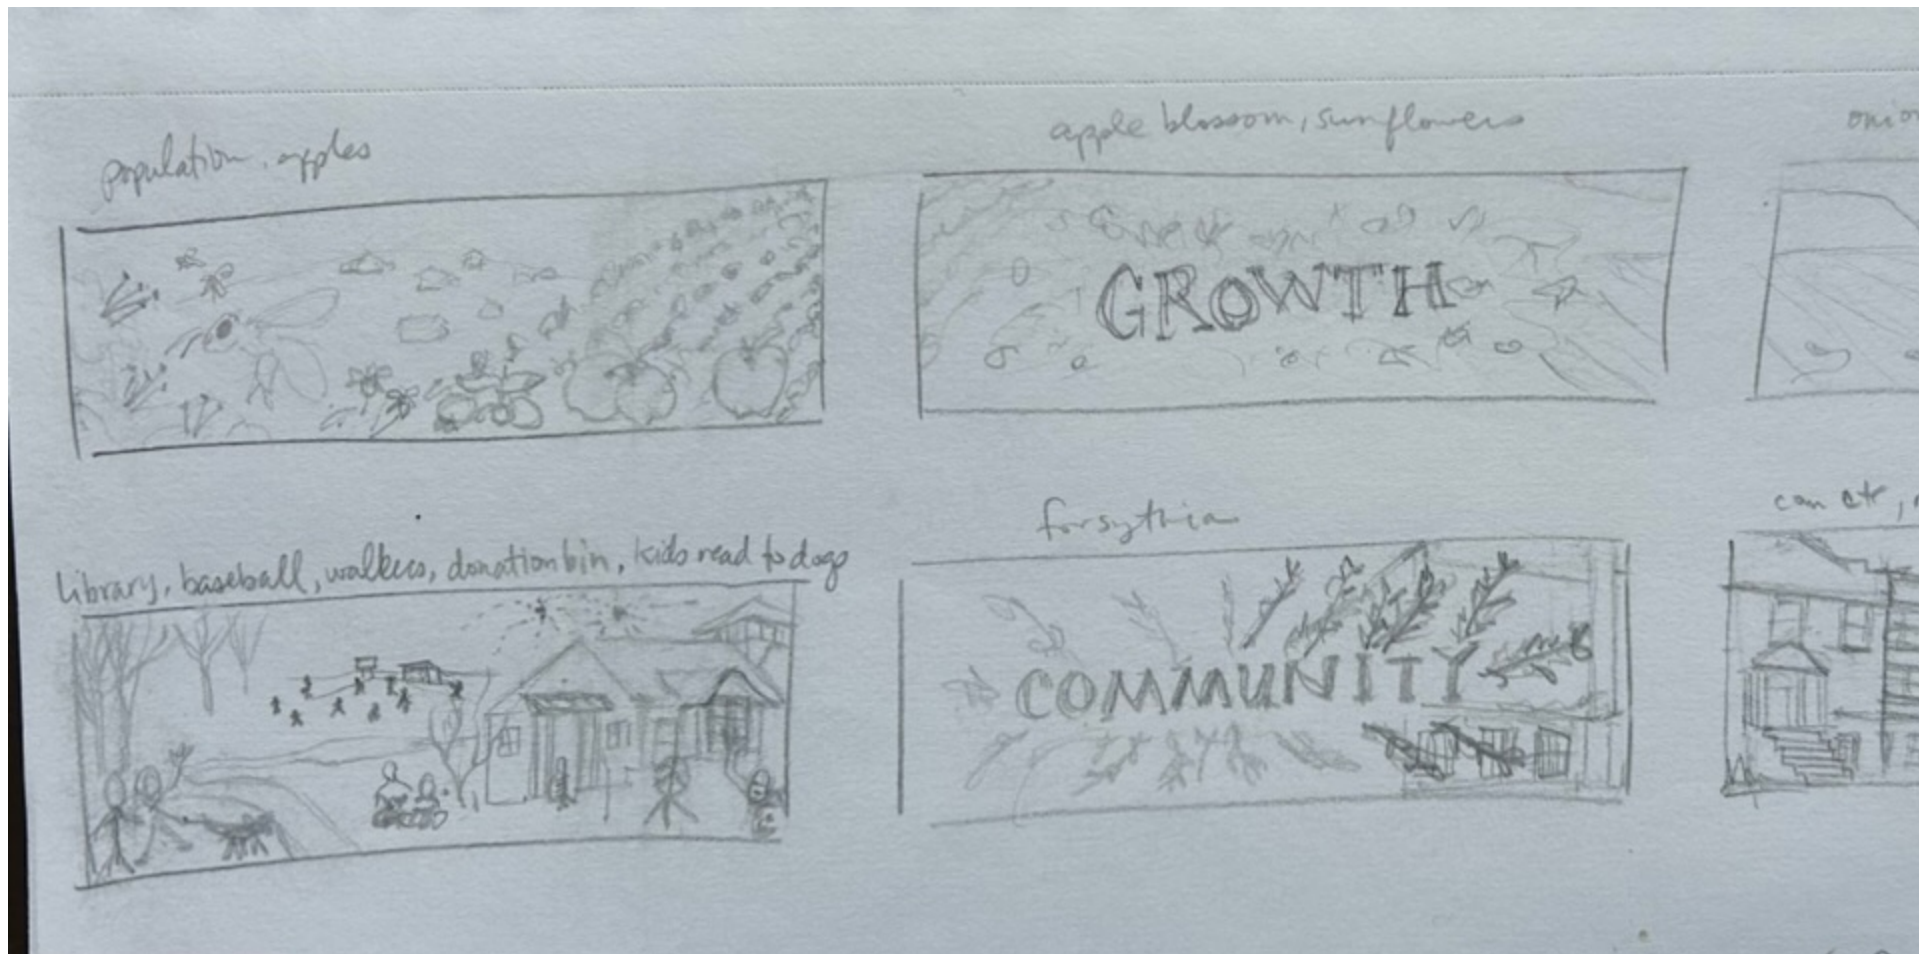 population, apples
apple blossom, sunflowers
GROWTH
library, baseball, walkers, donation bin, kids read to dogs
forsythia
COMMUNITY